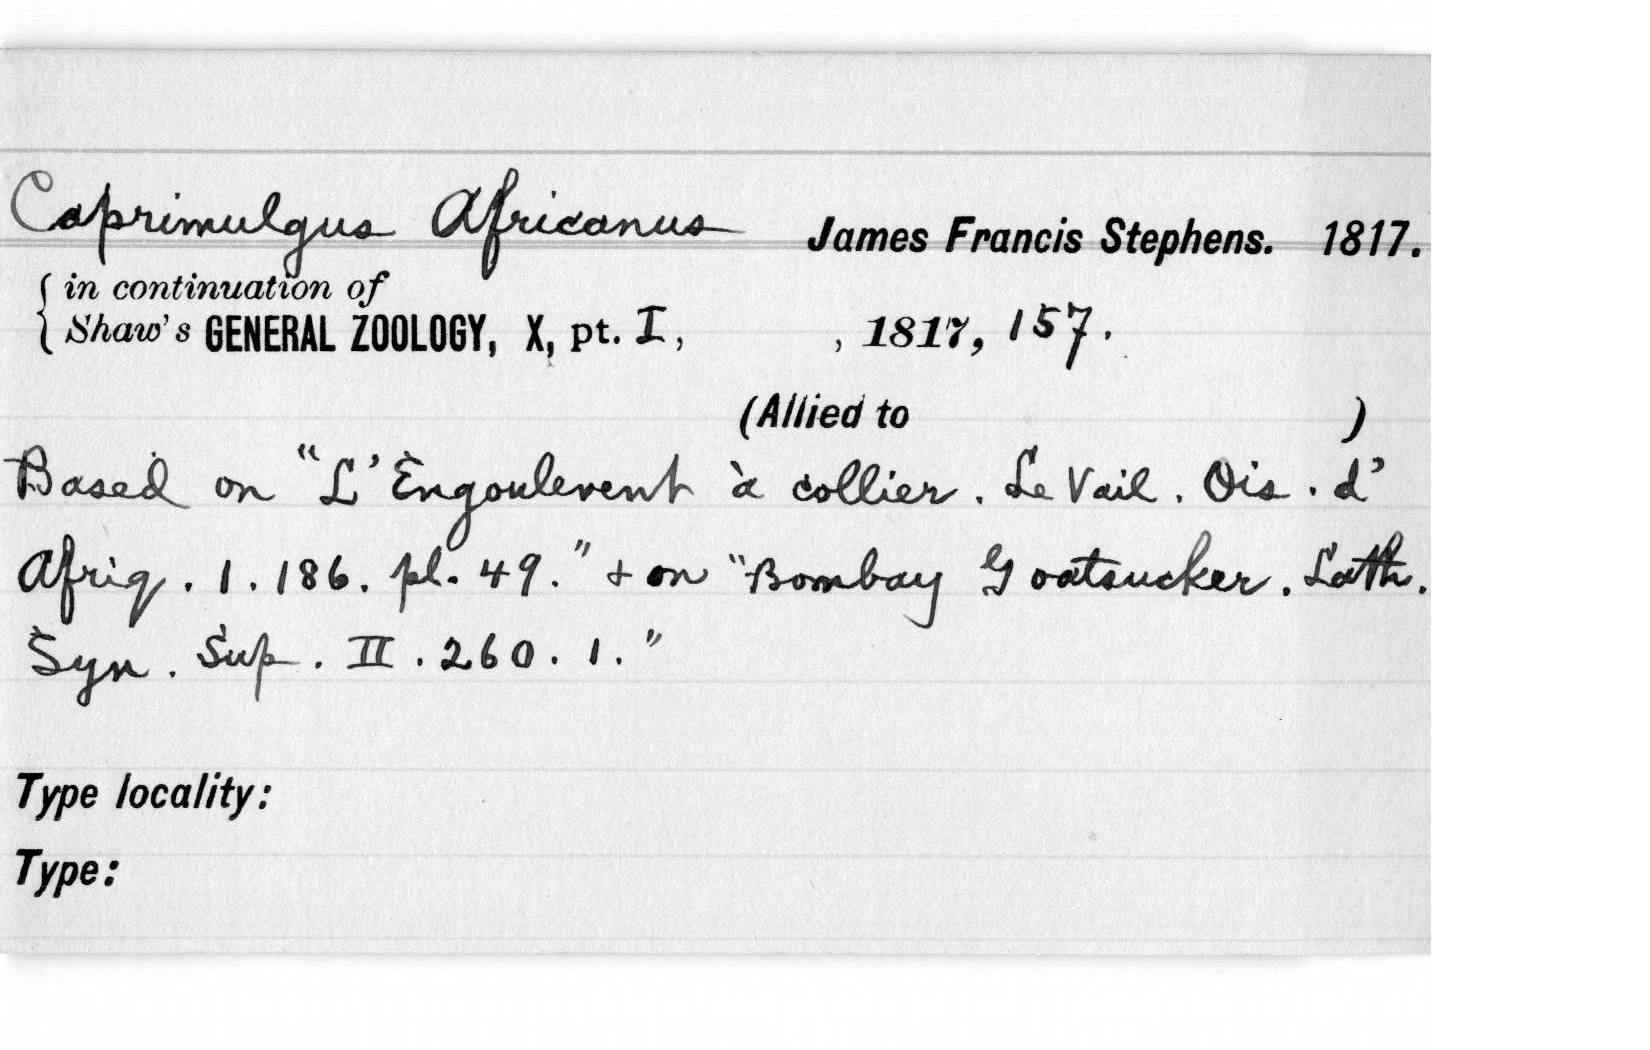 Caprimulgus Africanus James Francis Stephens. 1817.
in continuation of
Shaw's GENERAL ZOOLOGY, X, pt. I, , 1817, 157.
(Allied to )
Based on "L'Engoulevent à collier. Le Vail. Ois. d'
Afriq. 1. 186. pl. 49." + on "Bombay Goatsucker. Lath.
Syn. Sup. II. 260. 1."
Type locality:
Type: